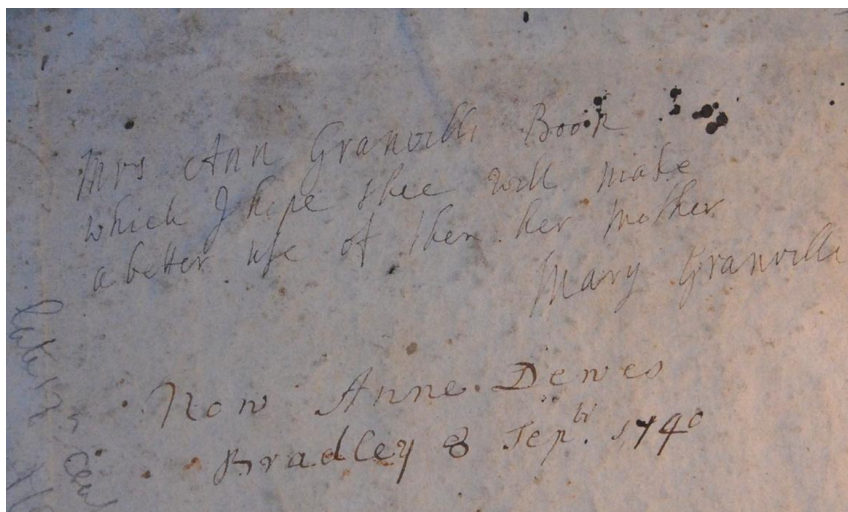 Mrs Ann Granvills Book
which I hope shee will make
a better use of then her mother
Mary Granvills
Now Anne Dewes
Bradley 8 Sepbr. 1740
late 17